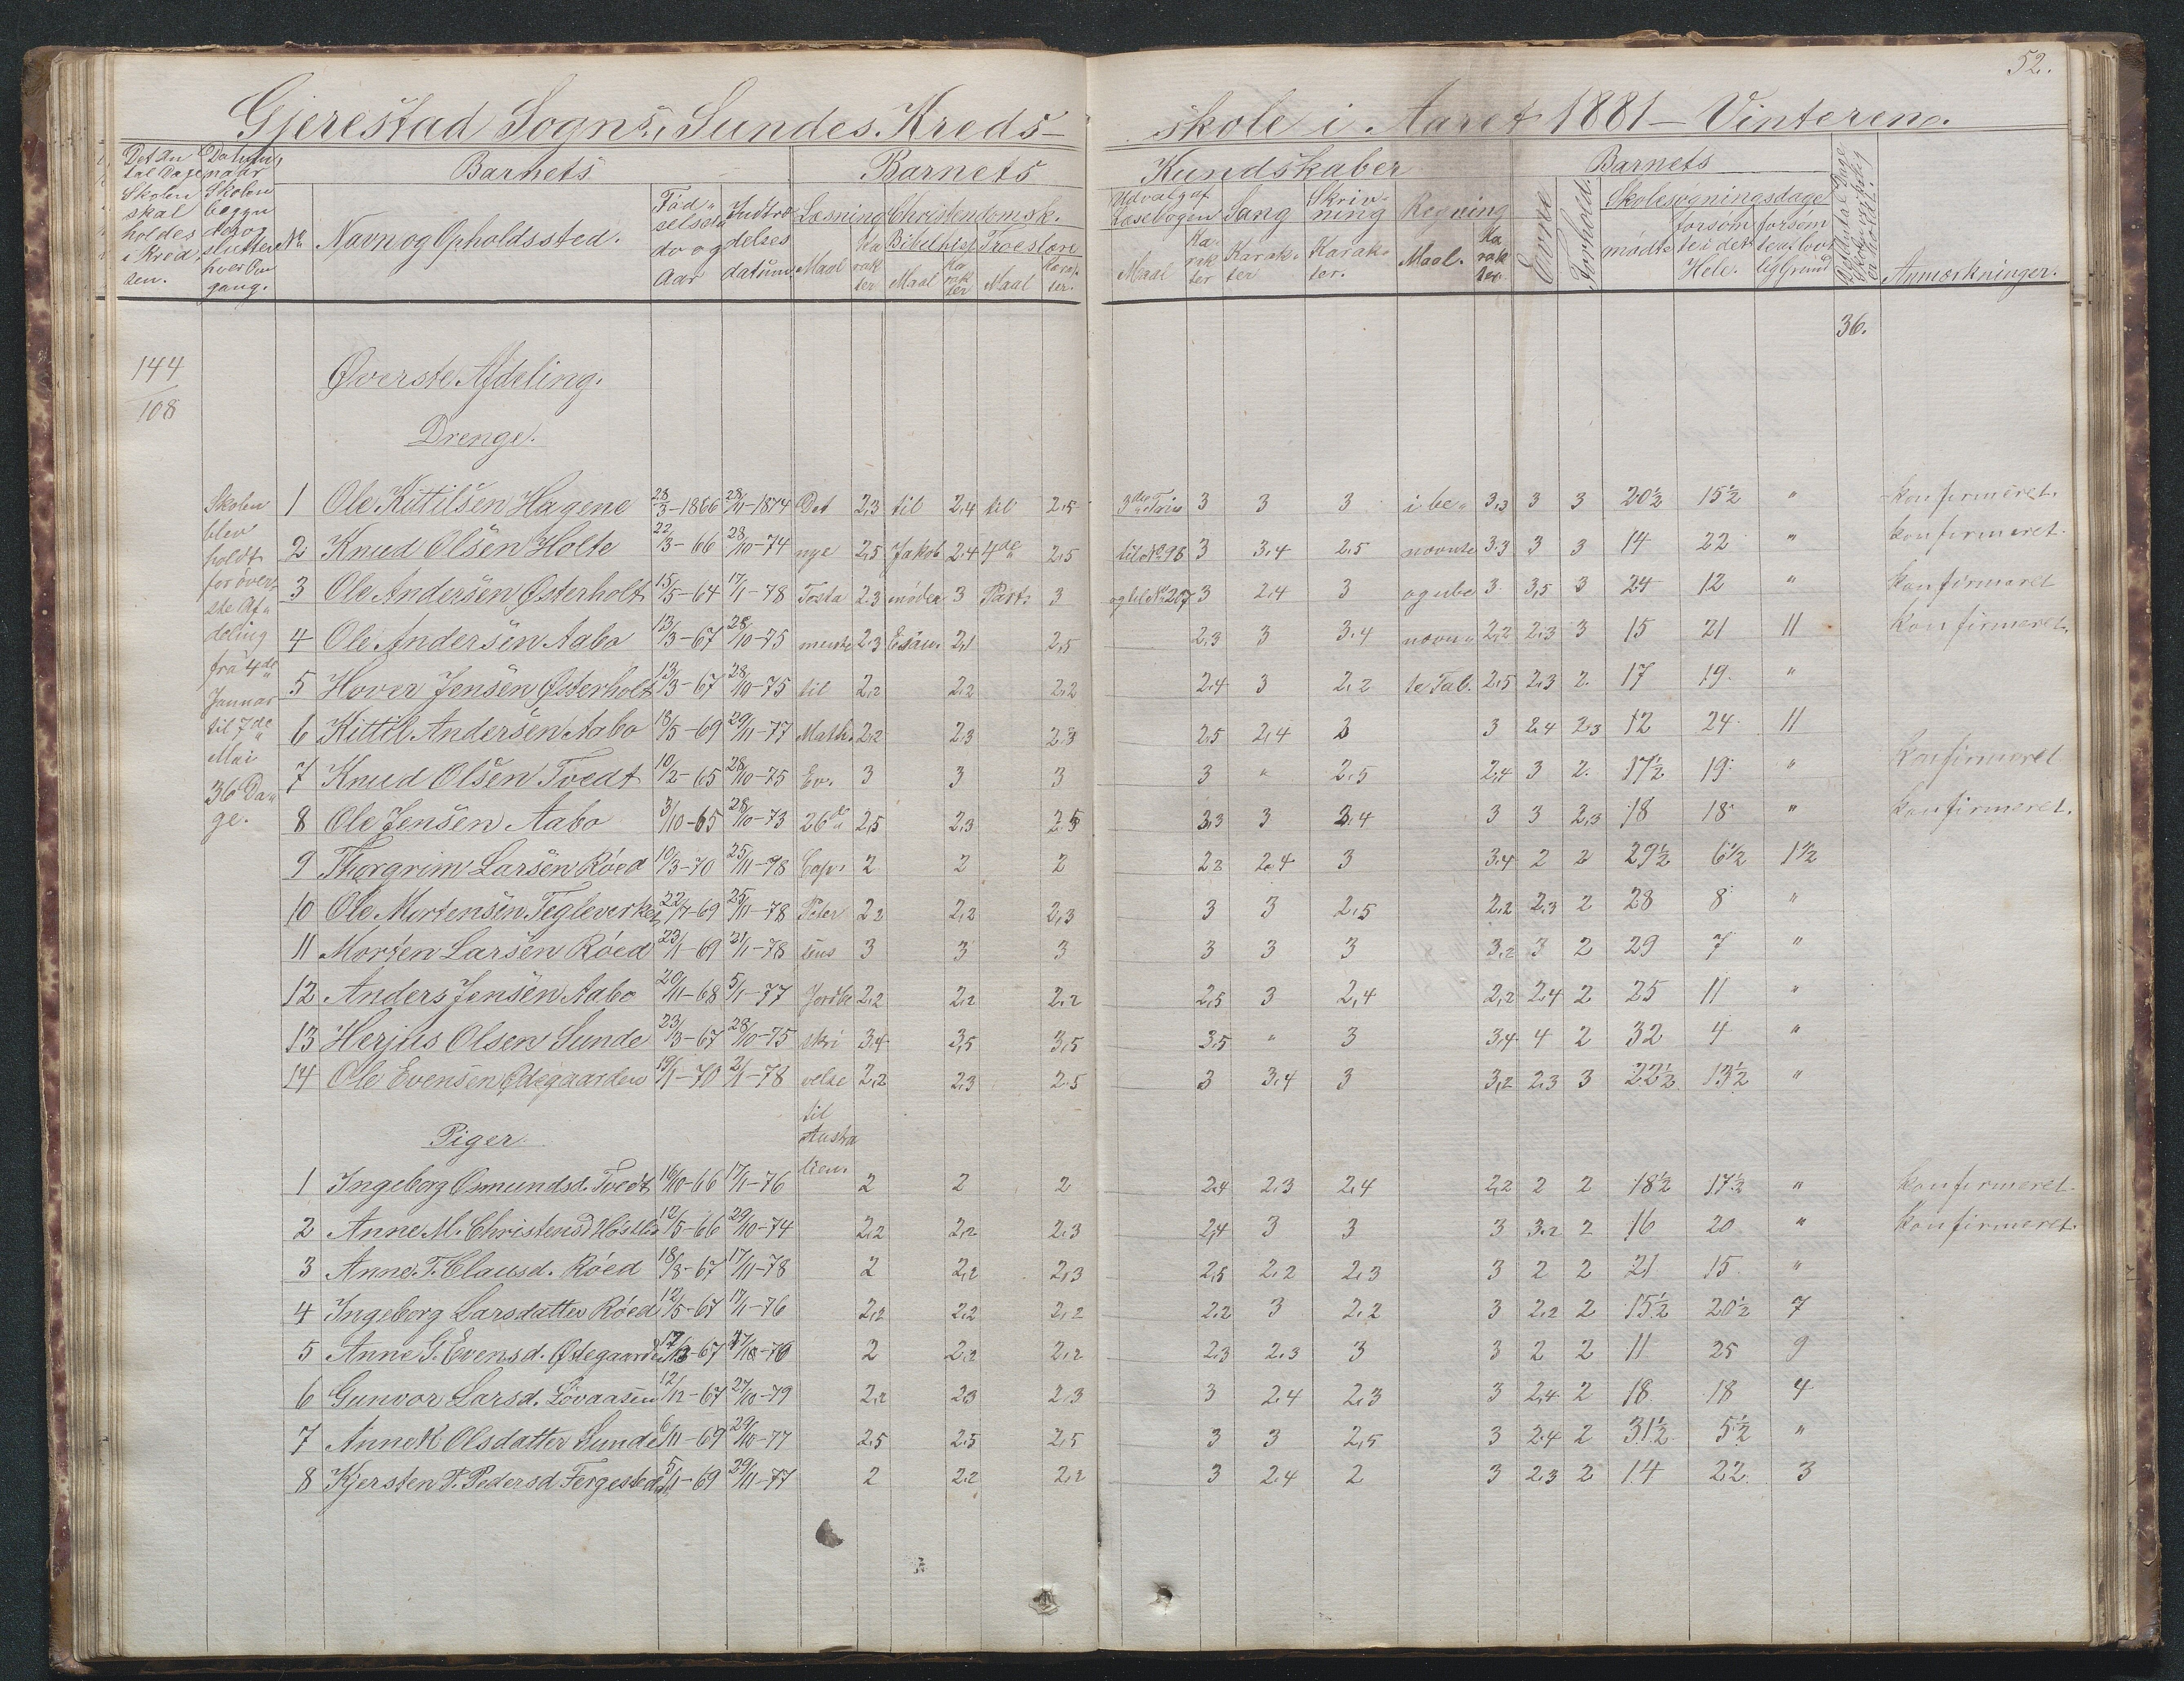 52.
Gjerestad Sogns, Sundes Kreds-skole i Aaret 1881 – Vinteren.
Det An tal Dage Skolen skal holdes i Kredsen.
Datum, naar Skolen begynder og slutter hver Omgang.
Barnets
Barnets
Kundskaber
Barnets
No. Navn og Opholdssted.
Fødselsdato og Aar
Indtrædelses datum
Læsning Maal Karakter
Christendomsk. Bibelhist. Maal Karakter Troeslære Maal Karakter.
Udvalg af Læsebogen Maal Karakter
Sang Karakter
Skrivning Karakter.
Regning Maal. Karakter.
Evne
Forhold.
Skolesøgningsdage mødte forsømte i det Hele. forsømte af lovlig Grund
Anmærkninger.
36.
144
108
Øverste Afdeling.
Drenge.
Skolen blev holdt for øverste Afdeling fra 4de Januar til 7de Mai 36 Dage.
1 Ole Kittilsen Hagene 28/3-1866 28/11-1874 Det 2,3 til 2,4 til 2,5 3die Trin 3 3 3 i be„ 3,3 3 3 20½ 15½ „ konfirmeret.
2 Knud Olsen Holte 22/3-66 28/10-74 nye 2,5 Jakob 2,4 4de 2,5 til No 96 3 3,4 2,5 nævnte 3,3 3 3 14 22 „ konfirmeret.
3 Ole Andersen Østerholt 15/5-64 17/1-78 Testa 2,3 møder 3 Part. 3 og til No 207 3 2,4 3 og ube 3 3,5 3 24 12 „ konfirmeret
4 Ole Andersen Aabo 13/3-67 28/10-75 mente 2,3 Esau. 2,1 2,5 2,3 3 3,4 nævn„ 2,2 2,3 3 15 21 11 konfirmeret.
5 Hover Jensen Østerholt 13/3-67 28/10-75 til 2,2 2,2 2,2 2,4 3 2,2 te Tal. 2,5 2,3 2. 17 19. „
6 Kittil Andersen Aabo 18/5-69 29/11-77 Math. 2,2 2,3 2,3 2,5 2,4 3 3 2,4 2,3 12 24 11
7 Knud Olsen Tvedt 10/2-65 28/10-75 Ev. 3 3 3 3 „ 2,5 2,4 3 2. 17½ 19 „ konfirmeret
8 Ole Jensen Aabo 3/10-65 28/10-73 26de 2,5 2,3 2,5 3,3 3 3,4 3 3 2,3 18 18 „ konfirmeret.
9 Thorgrim Larsen Røed 10/3-70 25/11-78 Cap. 2 2 2 2,2 2,4 3 3,4 2 2 29½ 6½ 1½
10 Ole Mortensen Tegleverket 22/7-69 25/11-78 Peter 2,2 2,2 2,3 3 3 2,5 2,2 2,3 2 28 8 „
11 Morten Larsen Røed 23/1-69 21/1-78 sens 3 3 3 3 3 3 3,2 3 2 29 7 „
12 Anders Jensen Aabo 20/11-68 5/1-77 Jordbe 2,2 2,2 2,2 2,5 3 2,4 2,2 2,4 2 25 11 „
13 Herjus Olsen Sunde 23/3-67 28/10-75 skri 3,4 3,5 3,5 3,5 „ 3 3,4 4 2 32 4 „
14 Ole Evensen Ødegaarden 19/1-70 2/1-78 velse 2,2 2,3 2,5 3 3,4 3 3,2 2,3 3 22½ 13½ „
til
Austra
lien.
Piger.
1 Ingeborg Osmundsd. Tvedt 16/10-66 17/1-76 2 2 2 2,4 2,3 2,4 2,2 2 2 18½ 17½ „ konfirmeret.
2 Anne M. Christensd 12/5-66 29/10-74 2,2 2,2 2,3 2,4 3 3 3 3,2 2 16 20 „ konfirmeret.
3 Anne T. Clausd. Røed 18/8-67 17/11-78 2 2,2 2,3 2,5 2,2 2,3 3 2 2 21 15 „
4 Ingeborg Larsdatter Røed 12/5-67 17/1-76 2,2 2,2 2,2 2,2 3 2,2 3 2,2 2 15½ 20½ 7
5 Anne G. Evensd. Ødegaarden 2 2,2 2,2 2,3 2,3 3 3 2 2 11 25 9
6 Gunvor Larsd. Løvaasen 12/12-67 27/10-79 2,2 2,3 2,3 3 2,4 2,3 3 2,4 2 18 18 4
7 Anne K Olsdatter Sunde 6/11-67 29/10-77 2,5 2,5 2,5 3 3 2,5 3 2,4 2 31½ 5½ „
8 Kjersten P. Pedersd. 5/11-69 29/11-77 2 2,2 2,2 3 2,4 2 3 2,3 2 14 22 3